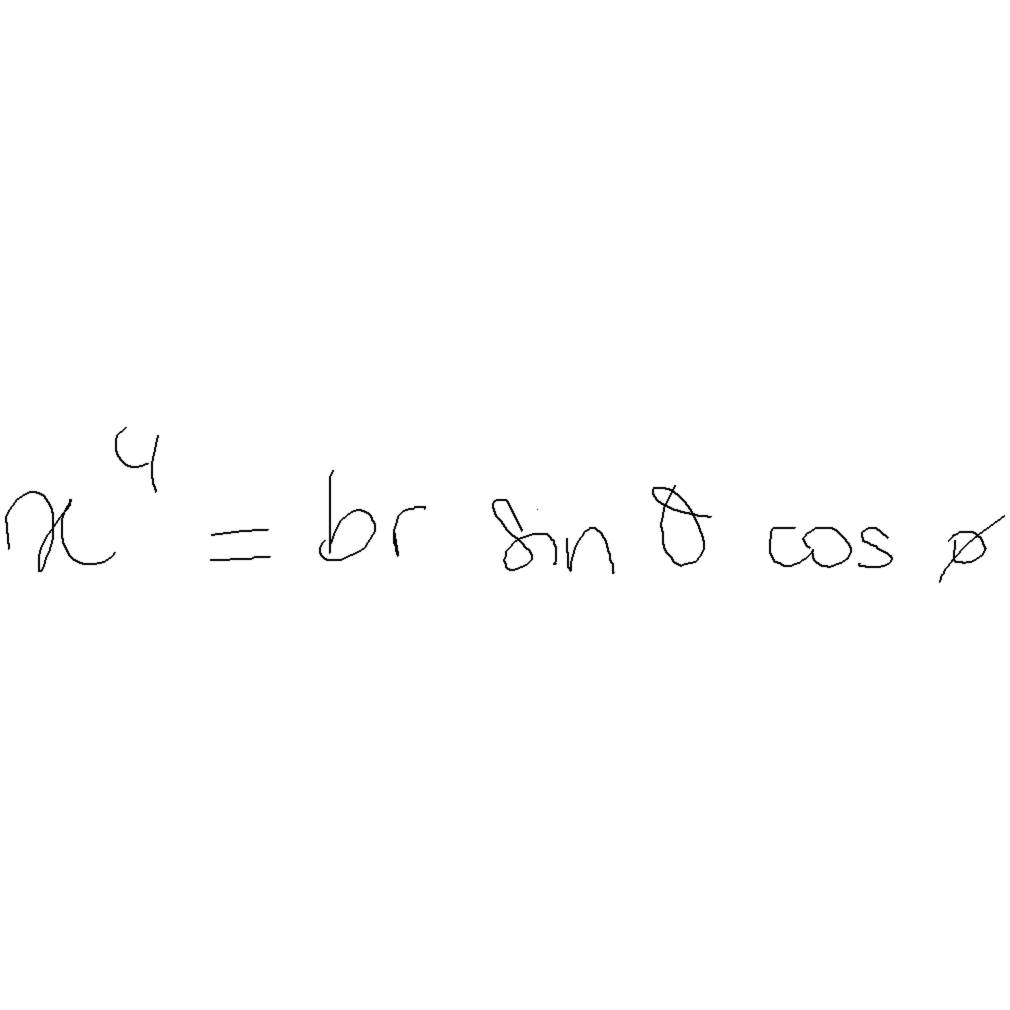 x⁴ = br sin θ cos φ